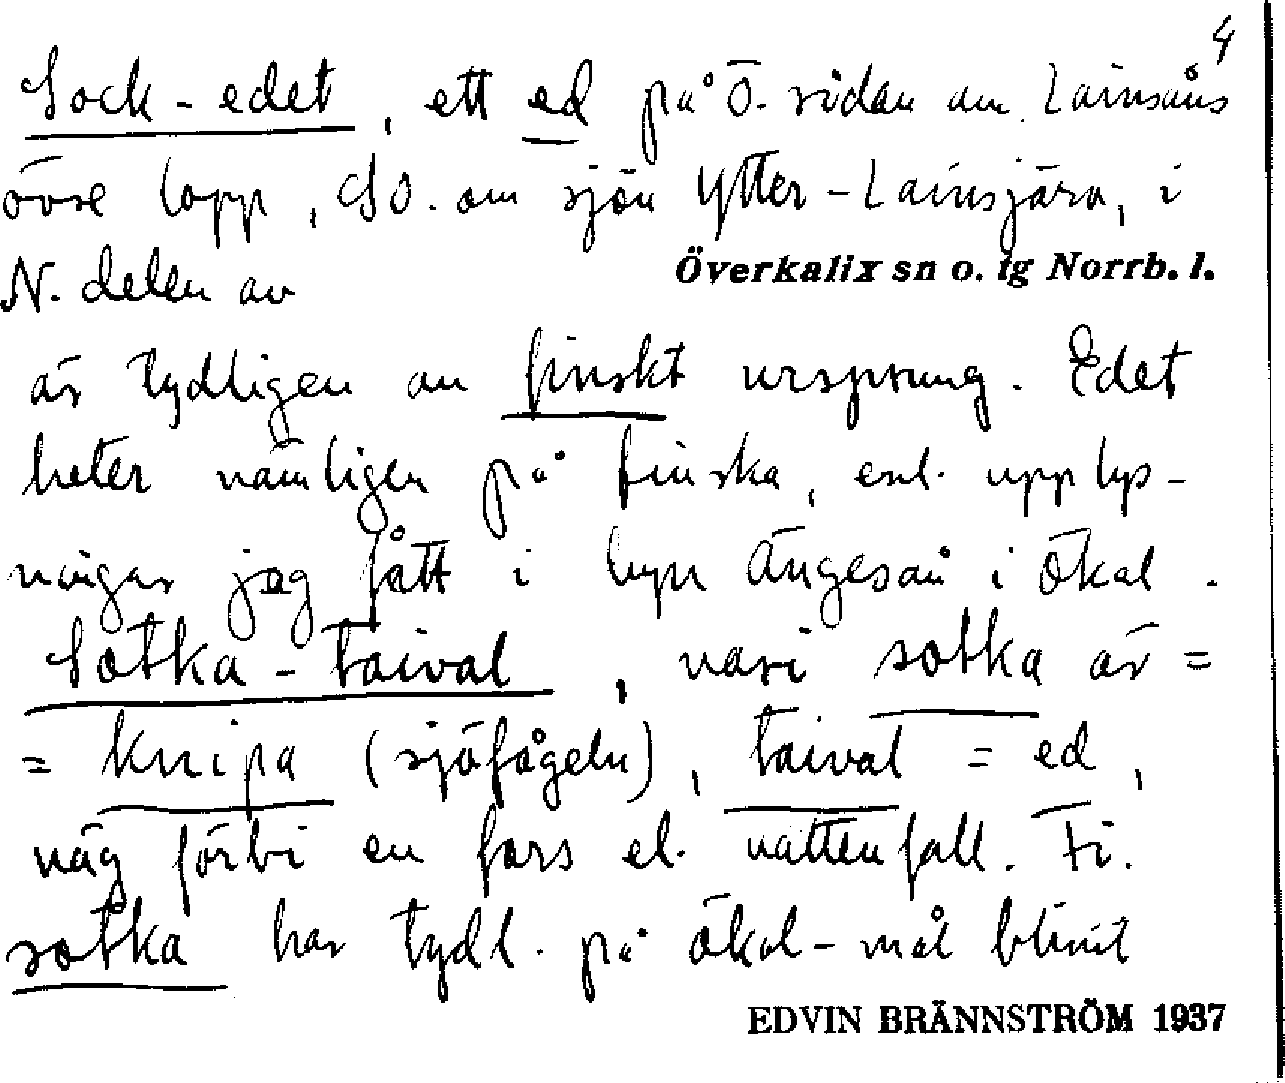 4
Sock-edet, ett ed på Ö. sidan om Lainsåns
övre lopp, SO. om sjön Ytter-Lainsjärv, i
N. delen av Överkalix sn o. tg Norrb. l.
är tydligen av finskt ursprung. Edet
heter nämligen på finska, enl. upplys-
ningar jag fått i byn Ängeså i Ökal.
Sotka-taival, vari sotka är =
= knipa (sjöfågeln), taival = ed,
väg förbi en fors el. vattenfall. Fi.
sotka har tydl. på ökal-mål blivit
EDVIN BRÄNNSTRÖM 1937